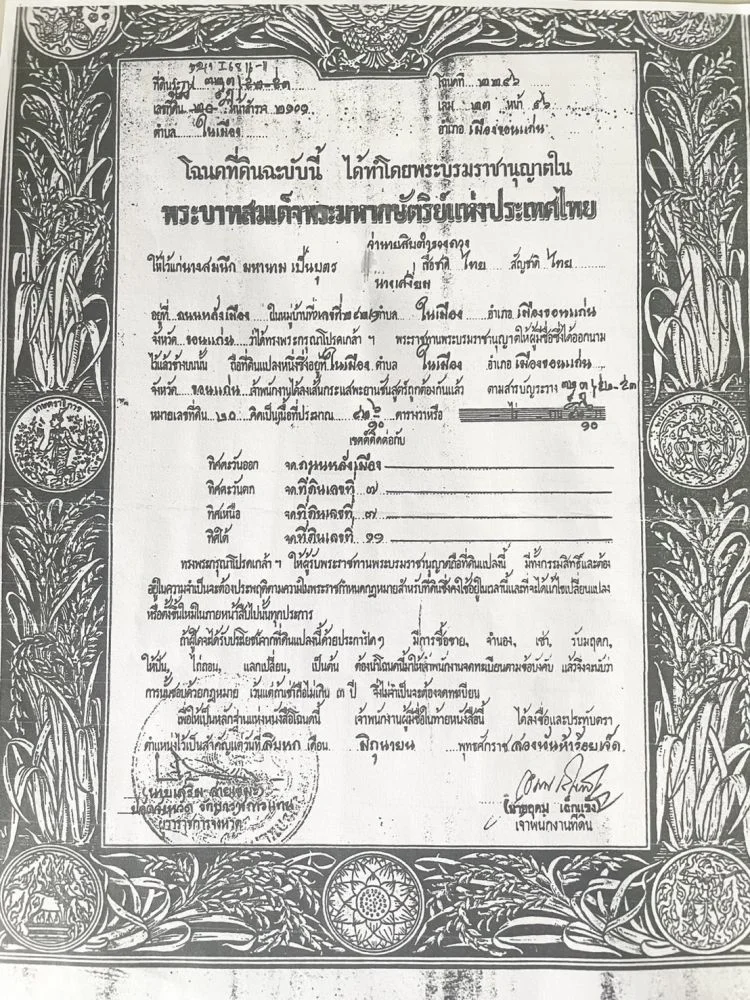 ที่ดินระวาง ๕๒-๕๓
โฉนดที่ ๒๒๕๖
เลขที่ดิน ๒๐ หน้าสำรวจ ๒๑๐๑
เล่ม ๒๓ หน้า ๕๖
ตำบล ในเมือง
อำเภอ เมืองขอนแก่น
โฉนดที่ดินฉะบับนี้ ได้ทำโดยพระบรมราชานุญาตใน
พระบาทสมเด็จพระมหากษัตริย์แห่งประเทศไทย
ให้ไว้แก่นางสมนึก มหานาม เป็นบุตร เชื้อชาติ ไทย สัญชาติ ไทย
นางเสงี่ยม
อยู่ที่ ถนนหลังเมือง ในหมู่บ้านที่ ตำบล ในเมือง อำเภอ เมืองขอนแก่น
จังหวัด ขอนแก่น ว่าได้ทรงพระกรุณโปรดเกล้า ฯ พระราชทานพระบรมราชานุญาตให้ผู้มีชื่อซึ่งได้ออกนาม
ไว้แล้วข้างบนนั้น ถือที่ดินแปลงหนึ่งซึ่งอยู่ที่ ในเมือง ตำบล ในเมือง อำเภอ เมืองขอนแก่น
จังหวัด ขอนแก่น เจ้าพนักงานได้สอบสวน ถูกต้องกันแล้ว ตามสารบัญระวาง ๕๒-๕๓
หมายเลขที่ดิน ๒๐ คิดเป็นเนื้อที่ประมาณ ตารางวาหรือ
๑๐ ๑๐
เขตต์ติดต่อกับ
ทิศตะวันออก จด ถนนหลังเมือง
ทิศตะวันตก จด ที่ดินเลขที่ ๗
ทิศเหนือ จด ที่ดินเลขที่ ๗
ทิศใต้ จด ที่ดินเลขที่ ๑๑
ทรงพระกรุณโปรดเกล้า ฯ ให้ผู้รับพระราชทานพระบรมราชานุญาตถือที่ดินแปลงนี้ มีทั้งกรรมสิทธิ์และต้อง
อยู่ในความจำเป็นจะต้องประพฤติตามความในพระราชกำหนดกฎหมายสำหรับที่ดินซึ่งคงใช้อยู่ในเวลานี้และที่จะได้แก้ไขเปลี่ยนแปลง
หรือตั้งขึ้นใหม่ในภายหน้าสืบไปนั้นทุกประการ
ถ้าผู้ใดจะได้รับประโยชน์จากที่ดินแปลงนี้ด้วยประการใด ๆ มีการซื้อขาย, จำนอง, เช่า, รับมฤดก,
ให้ปัน, ไถ่ถอน, แลกเปลี่ยน, เป็นต้น ต้องนำโฉนดนี้มาให้เจ้าพนักงานจดทะเบียนตามข้อบังคับ แล้วจึงจะนับว่า
การนั้นชอบด้วยกฎหมาย เว้นแต่ถ้าเช่าถือไม่เกิน ๓ ปี จึงไม่จำเป็นจะต้องจดทะเบียน
เพื่อให้เป็นหลักฐานแห่งหนังสือโฉนดนี้ เจ้าพนักงานผู้มีชื่อในท้ายหนังสือนี้ ได้ลงชื่อและประทับตรา
ตำแหน่งไว้เป็นสำคัญแต่วันที่ สิบหก เดือน มิถุนายน พุทธศักราช สองพันห้าร้อยเจ็ด
ปลัดจังหวัด
เจ้าพนักงานที่ดิน